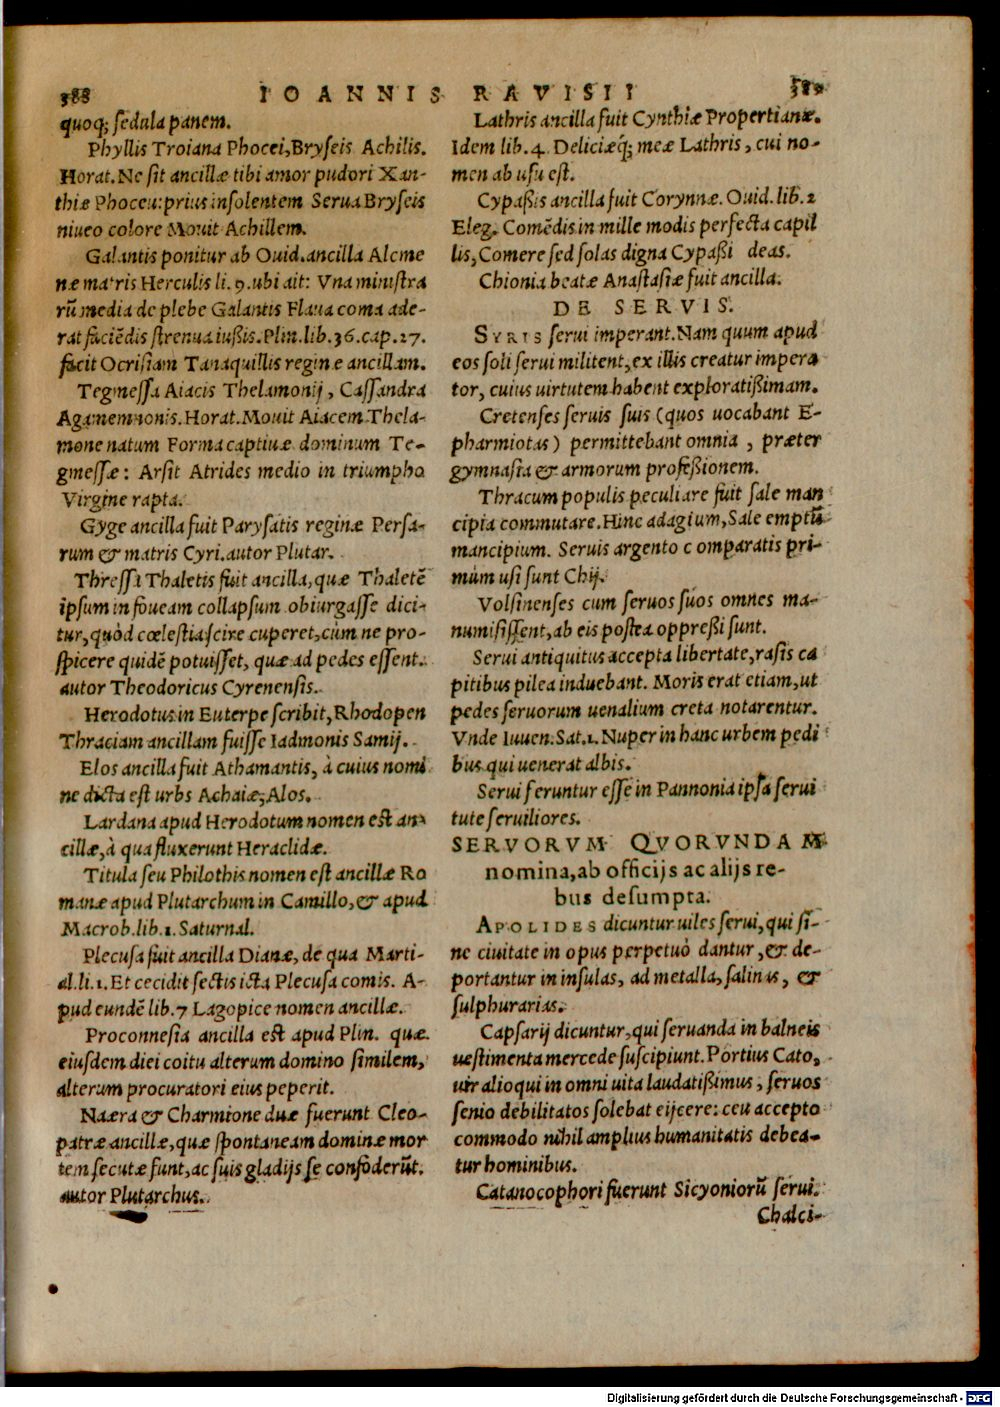 388 IOANNIS RAVISII 389
quoq; ſedula panem.
Phyllis Troiana Phocei, Bryſeis Achilis.
Horat. Ne ſit ancillæ tibi amor pudori Xan-
thiæ Phoceu: prius inſolentem Serua Bryſeis
niueo colore Mouit Achillem.
Galantis ponitur ab Ouid. ancilla Alcme
næ matris Herculis li. 9. ubi ait: Vna miniſtra
rũ media de plebe Galantis Flaua coma ade-
rat faciẽdis ſtrenua iußis. Plin. lib. 36. cap. 27.
facit Ocriſiam Tanaquillis reginæ ancillam.
Tegmeſſa Aiacis Thelamonij, Caſſandra
Agamemnonis. Horat. Mouit Aiacem Thela-
mone natum Forma captiuæ dominum Te-
gmeſſæ: Arſit Atrides medio in triumpho
Virgine rapta.
Gyge ancilla fuit Paryſatis reginæ Perſa-
rum & matris Cyri. autor Plutar.
Threſſa Thaletis fuit ancilla, quæ Thaletẽ
ipſum in foueam collapſum obiurgaſſe dici-
tur, quòd cœleſtia ſcire cuperet, cùm ne pro-
ſpicere quidẽ potuiſſet, quæ ad pedes eſſent.
autor Theodoricus Cyrenenſis.
Herodotus in Euterpe ſcribit, Rhodopen
Thraciam ancillam fuiſſe Iadmonis Samij.
Elos ancilla fuit Athamantis, à cuius nomi
ne dicta eſt urbs Achaiæ, Alos.
Lardana apud Herodotum nomen eſt an-
cillæ, à qua fluxerunt Heraclidæ.
Titula ſeu Philothis nomen eſt ancillæ Ro
manæ apud Plutarchum in Camillo, & apud
Macrob. lib. 1. Saturnal.
Plecuſa fuit ancilla Dianæ, de qua Marti-
al. li. 1. Et cecidit ſectis icta Plecuſa comis. A-
pud eundẽ lib. 7 Lagopice nomen ancillæ.
Proconneſia ancilla eſt apud Plin. quæ
eiuſdem diei coitu alterum domino ſimilem,
alterum procuratori eius peperit.
Naæra & Charmione duæ fuerunt Cleo-
patræ ancillæ, quæ ſpontaneam dominæ mor
tem ſecutæ ſunt, ac ſuis gladijs ſe confoderũt.
autor Plutarchus.
Lathris ancilla fuit Cynthiæ Propertianæ.
Idem lib. 4. Deliciæq́; meæ Lathris, cui no-
men ab uſu eſt.
Cypaßis ancilla fuit Corynnæ. Ouid. lib. 2
Eleg. Comẽdis in mille modis perfecta capil
lis, Comere ſed ſolas digna Cypaßi deas.
Chionia beatæ Anaſtaſiæ fuit ancilla.
DE SERVIS.
SYRIS ſerui imperant. Nam quum apud
eos ſoli ſerui militent, ex illis creatur impera
tor, cuius uirtutem habent exploratißimam.
Cretenſes ſeruis ſuis (quos uocabant E-
pharmiotas) permittebant omnia, præter
gymnaſia & armorum profeßionem.
Thracum populis peculiare fuit ſale man
cipia commutare. Hinc adagium, Sale emptũ
mancipium. Seruis argento c omparatis pri-
mùm uſi ſunt Chij.
Volſinenſes cum ſeruos ſuos omnes ma-
numiſiſſent, ab eis poſtea oppreßi ſunt.
Serui antiquitus accepta libertate, raſis ca
pitibus pilea induebant. Moris erat etiam, ut
pedes ſeruorum uenalium creta notarentur.
Vnde Iuuen. Sat. 1. Nuper in hanc urbem pedi
bus qui uenerat albis.
Serui feruntur eſſe in Pannonia ipſa ſerui
tute ſeruiliores.
SERVORVM QVORVNDAM
nomina, ab officijs ac alijs re-
bus deſumpta.
APOLIDES dicuntur uiles ſerui, qui ſi-
ne ciuitate in opus perpetuò dantur, & de-
portantur in inſulas, ad metalla, ſalinas, &
ſulphurarias.
Capſarij dicuntur, qui ſeruanda in balneis
ueſtimenta mercede ſuſcipiunt. Portius Cato,
uir alioqui in omni uita laudatißimus, ſeruos
ſenio debilitatos ſolebat eijcere: ceu accepto
commodo nihil amplius humanitatis debea-
tur hominibus.
Catanocophori fuerunt Sicyoniorũ ſerui.
Chalci-
Digitalisierung gefördert durch die Deutsche Forschungsgemeinschaft - DFG